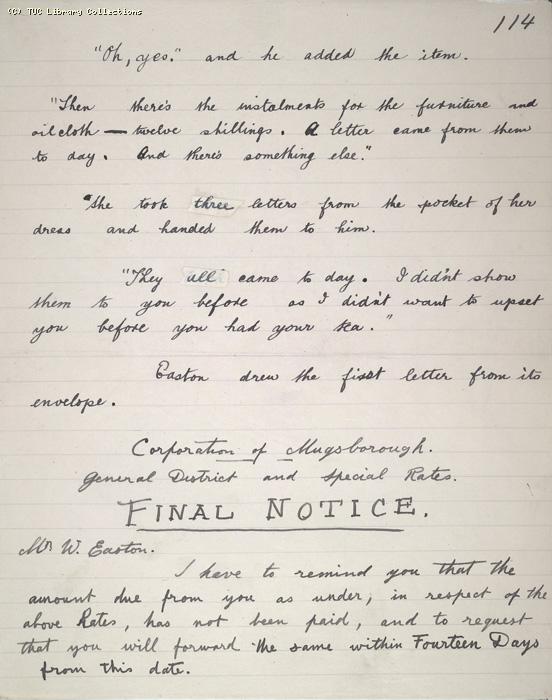 (C) TUC Library Collections
114
"Oh, yes." and he added the item.
"Then there's the instalments for the furniture and
oilcloth — twelve shillings. A letter came from them
to day. And there's something else."
"She took three letters from the pocket of her
dress and handed them to him.
"They all came to day. I didn't show
them to you before as I didn't want to upset
you before you had your tea."
Easton drew the first letter from its
envelope.
Corporation of Mugsborough.
General District and Special Rates.
FINAL NOTICE.
Mr W. Easton.
I have to remind you that the
amount due from you as under, in respect of the
above Rates, has not been paid, and to request
that you will forward the same within Fourteen Days
from this date.